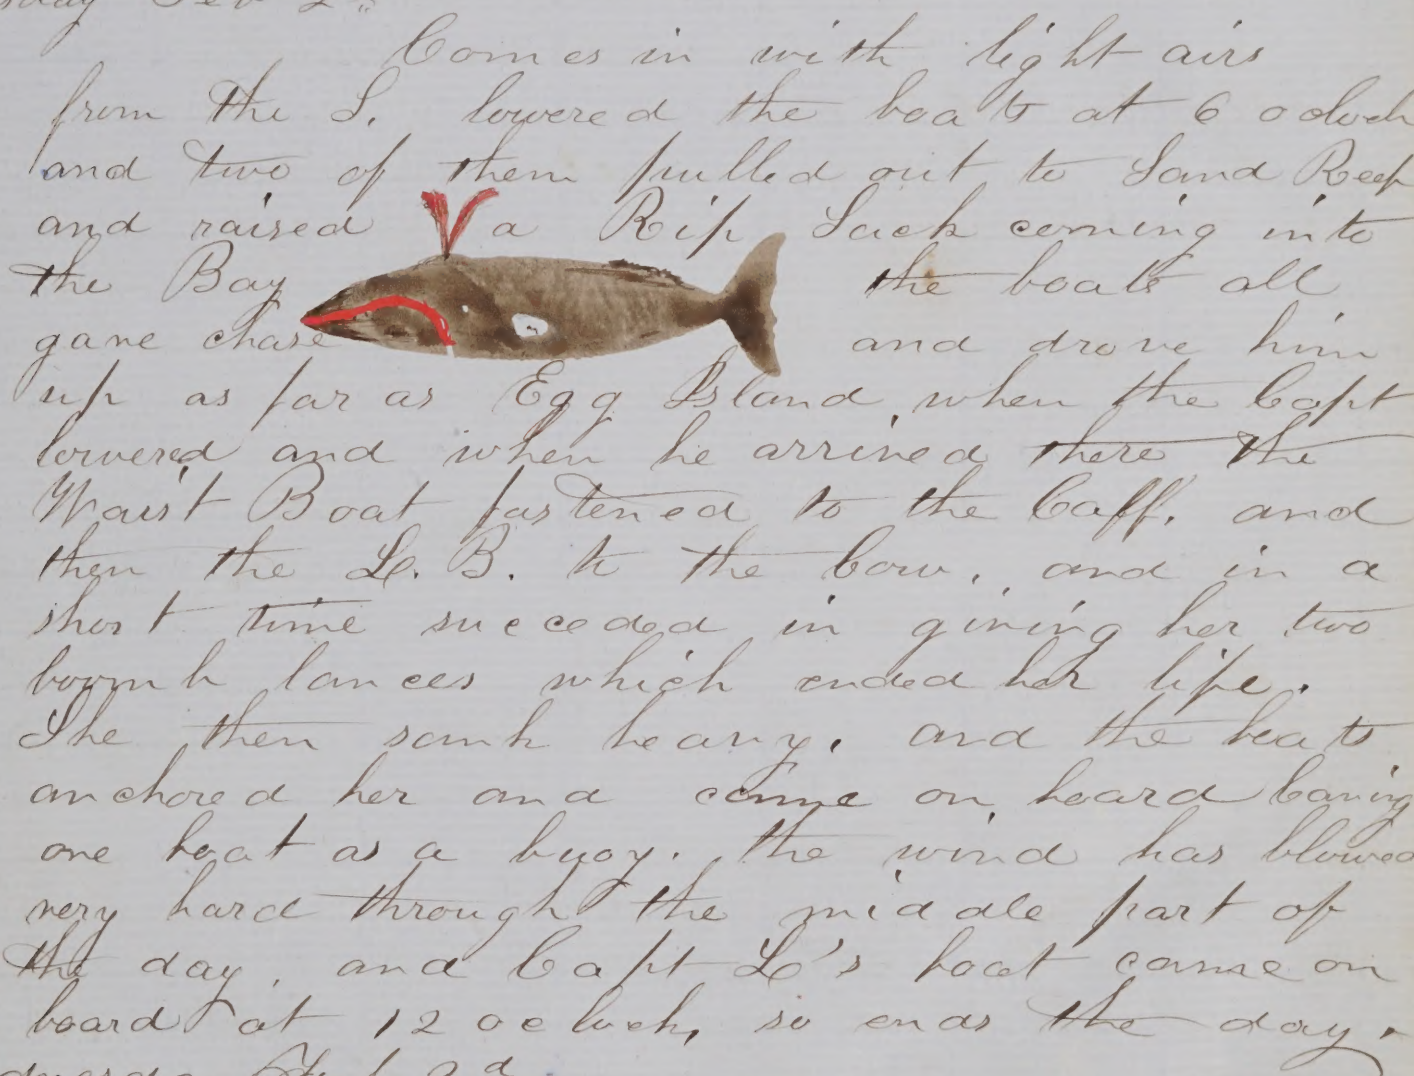 Feb 2"
Comes in with light airs
from the S. lowered the boats at 6 oclock
and two of them pulled out to Sand Reef
and raised a Rip Sack coming into
the Bay the boats all
gave chase and drove him
up as far as Egg Island, when the Capt
lowered and when he arrived there the
Waist Boat fastened to the Calf. and
then the L. B. to the Cow, and in a
short time succeded in giving her two
boomb lances which ended her life.
She then sank heavy. and the boats
anchored her and came on board leaving
one boat as a buoy. the wind has blowed
very hard through the middle part of
the day, and Capt L's boat came on
board at 12 oclock, so ends the day.